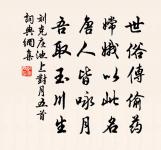 世俗傳偷藥
嫦娥以此名
唐人皆咏月
吾取玉川生
刘克庄池上對月五首
詞典網集